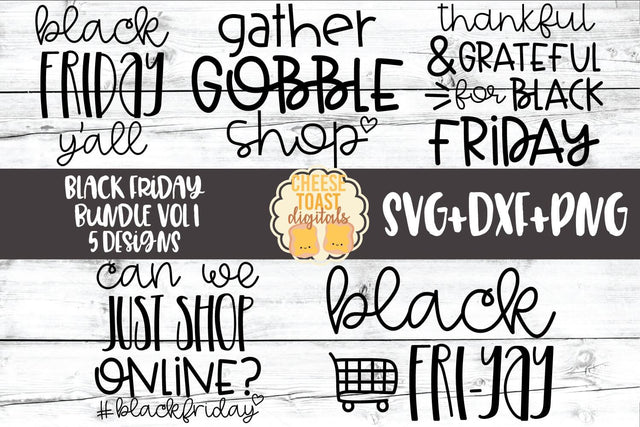 black
FRIDAY
y'all
gather
GOBBLE
shop
thankful
& GRATEFUL
for BLACK
FRIDAY
BLACK FRIDAY
BUNDLE VOL 1
5 DESIGNS
CHEESE
TOAST
digitals
SVG+DXF+PNG
can we
JUST SHOP
ONLINE?
#blackfriday
black
FRI-YAY